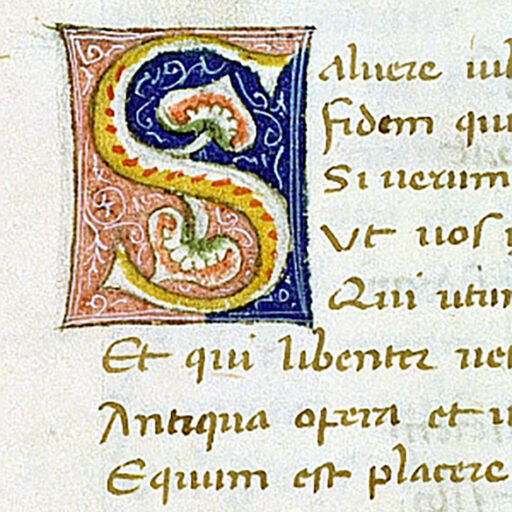 Saluere iub
fidem qui
Si uerum
Ut uos
Qui utun
Et qui libenter uet
Antiqua opera et u
Equum est placere